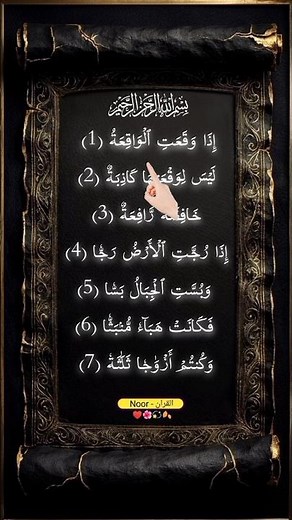 بِسْمِ اللهِ الرَّحْمٰنِ الرَّحِيْمِ
إِذَا وَقَعَتِ ٱلْوَاقِعَةُ (1)
لَيْسَ لِوَقْعَتِهَا كَاذِبَةٌ (2)
خَافِضَةٌ رَّافِعَةٌ (3)
إِذَا رُجَّتِ ٱلْأَرْضُ رَجًّا (4)
وَبُسَّتِ ٱلْجِبَالُ بَسًّا (5)
فَكَانَتْ هَبَآءً مُّنۢبَثًّا (6)
وَكُنتُمْ أَزْوَٰجًا ثَلَٰثَةً (7)
Noor - القرآن